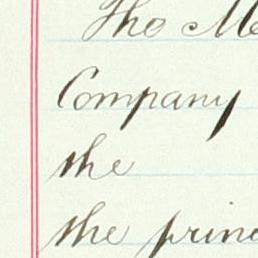 Tho Me
Company
the
the princ